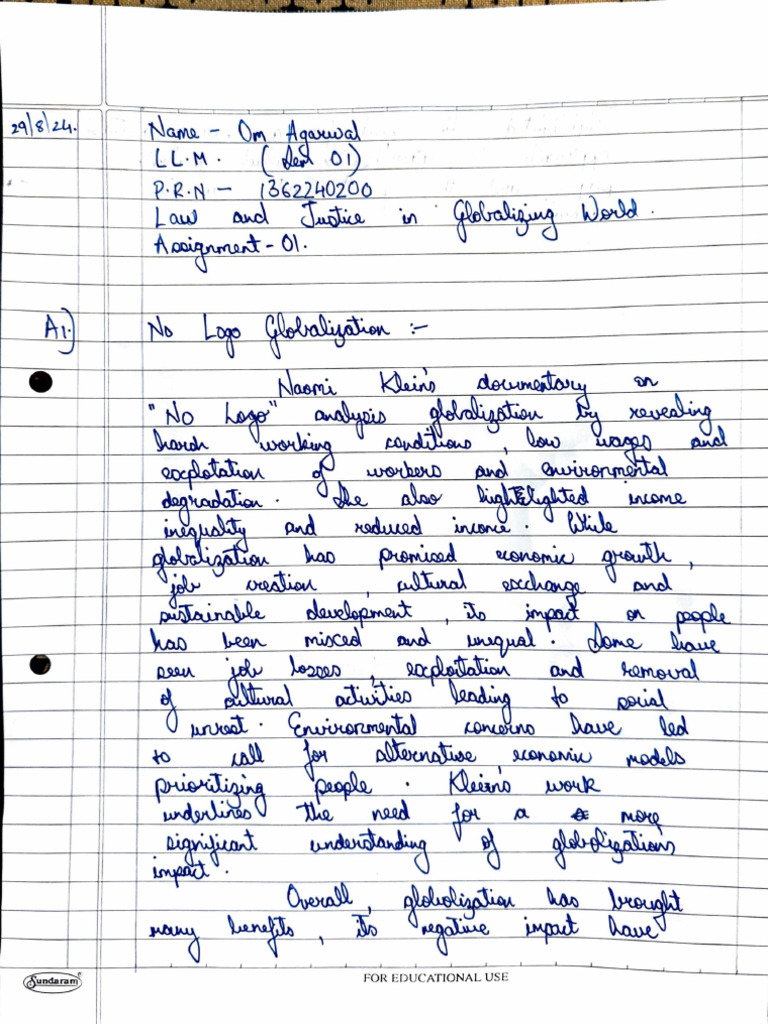 29/8/24.
Name - Om Agarwal
LL.M. (Sem 01)
P.R.N - 1362240200
Law and Justice in Globalizing World.
Assignment - 01.
A1.) No Logo Globalization :-
Naomi Klein's documentary on
"No Logo" analysis globalization by revealing
harsh working conditions, low wages and
explotation of workers and environmental
degradation. She also highlighted income
inequality and reduced income. While
globalization has promised economic growth,
job creation, cultural exchange and
sustainable development, its impact on people
has been mixed and unequal. Some have
seen job losses, exploitation and removal
of cultural activities leading to social
unrest. Environmental concerns have led
to call for alternative economic models
prioritizing people. Klein's work
underlines the need for a more
significant understanding of globolizations
impact.
Overall, globolization has brought
many benefits, its negative impact have
Sundaram
FOR EDUCATIONAL USE